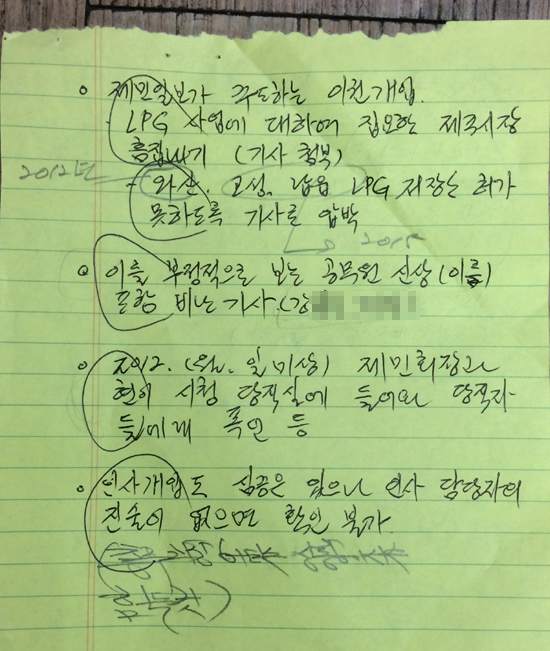 ◦ 제민일보가 주도하는 이권개입.
- LPG 사업에 대하여 집요한 제주시장
흠집내기 (기사 첨부)
2012년 - 와산. 고성. 납읍 LPG 저장소 허가
못하도록 기사로 압박
→ 2015
◦ 이를 부정적으로 보는 공무원 신상(이름)
포함 비난기사.(강
◦ 2012. (월. 일 미상) 제민회장과
현이 시청 당직실에 들어와 당직자
들에게 폭언 등
◦ 인사개입도 심증은 있으나 인사 담당자의
진술이 없으면 확인 불가
힘든것)